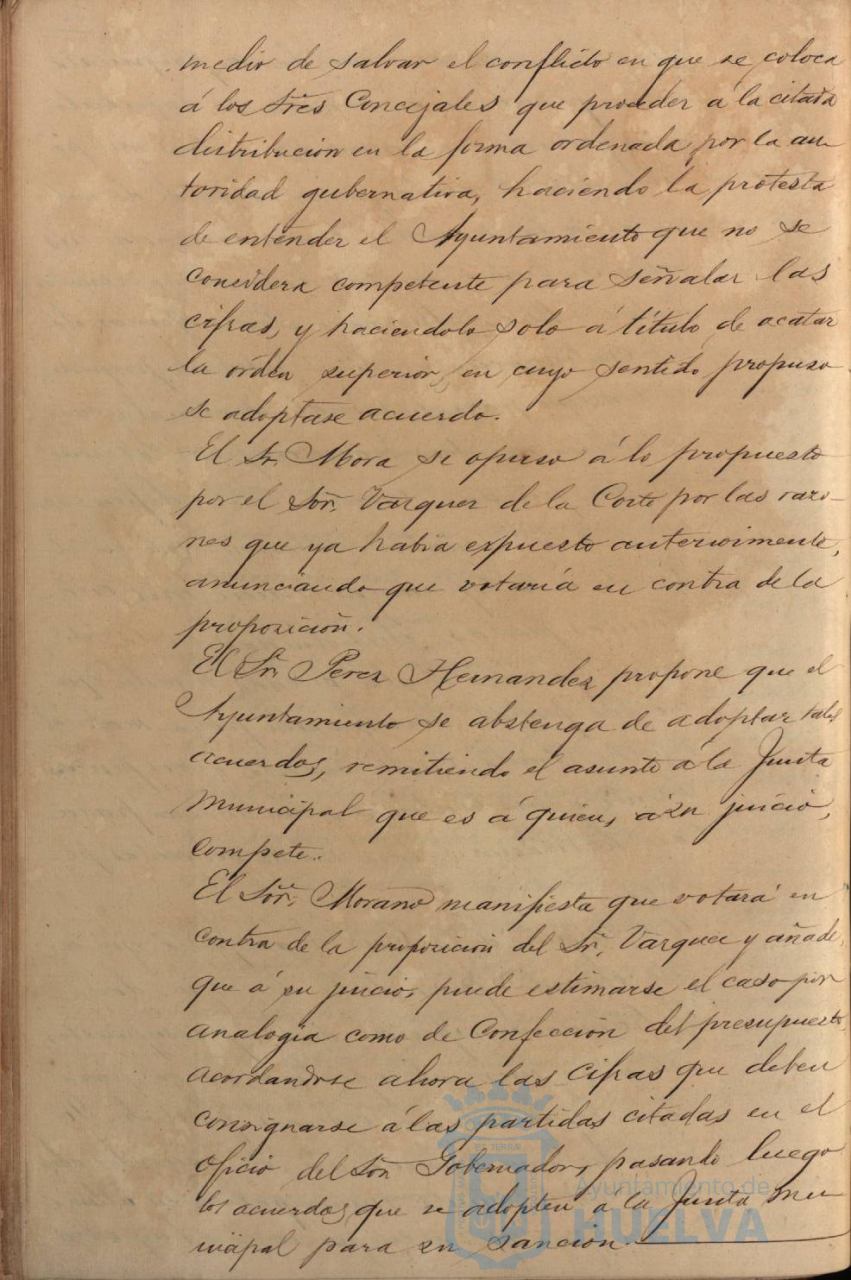 medio de salvar el conflicto en que se coloca
á los Sres Concejales que proceder á la citada
distribucion en la forma ordenada por la au-
toridad gubernativa, haciendo la protesta
de entender el Ayuntamiento que no se
considera competente para señalar las
cifras, y haciendolo solo á título de acatar
la orden superior, en cuyo sentido propuso
se adoptase acuerdo.
El Sr. Mora se opuso á lo propuesto
por el Sor. Vazquez de la Corte por las razo-
nes que ya habia expuesto anteriormente,
anunciando que votaría en contra de la
proposicion.
El Sr. Perez Hernandez propone que el
Ayuntamiento se abstenga de adoptar tales
acuerdos, remitiendo el asunto á la Junta
Municipal que es á quien, á su juicio,
compete.
El Sor. Morano manifiesta que votará en
contra de la proposicion del Sr. Vazquez y añade,
que á su juicio, puede estimarse el caso por
analogía como de Confeccion del presupuesto,
acordandose ahora las cifras que deben
consignarse á las partidas citadas en el
oficio del Sor Gobernador, pasando luego
los acuerdos que se adopten á la Junta mu-
nicipal para su sancion.
Ayuntamiento de
HUELVA